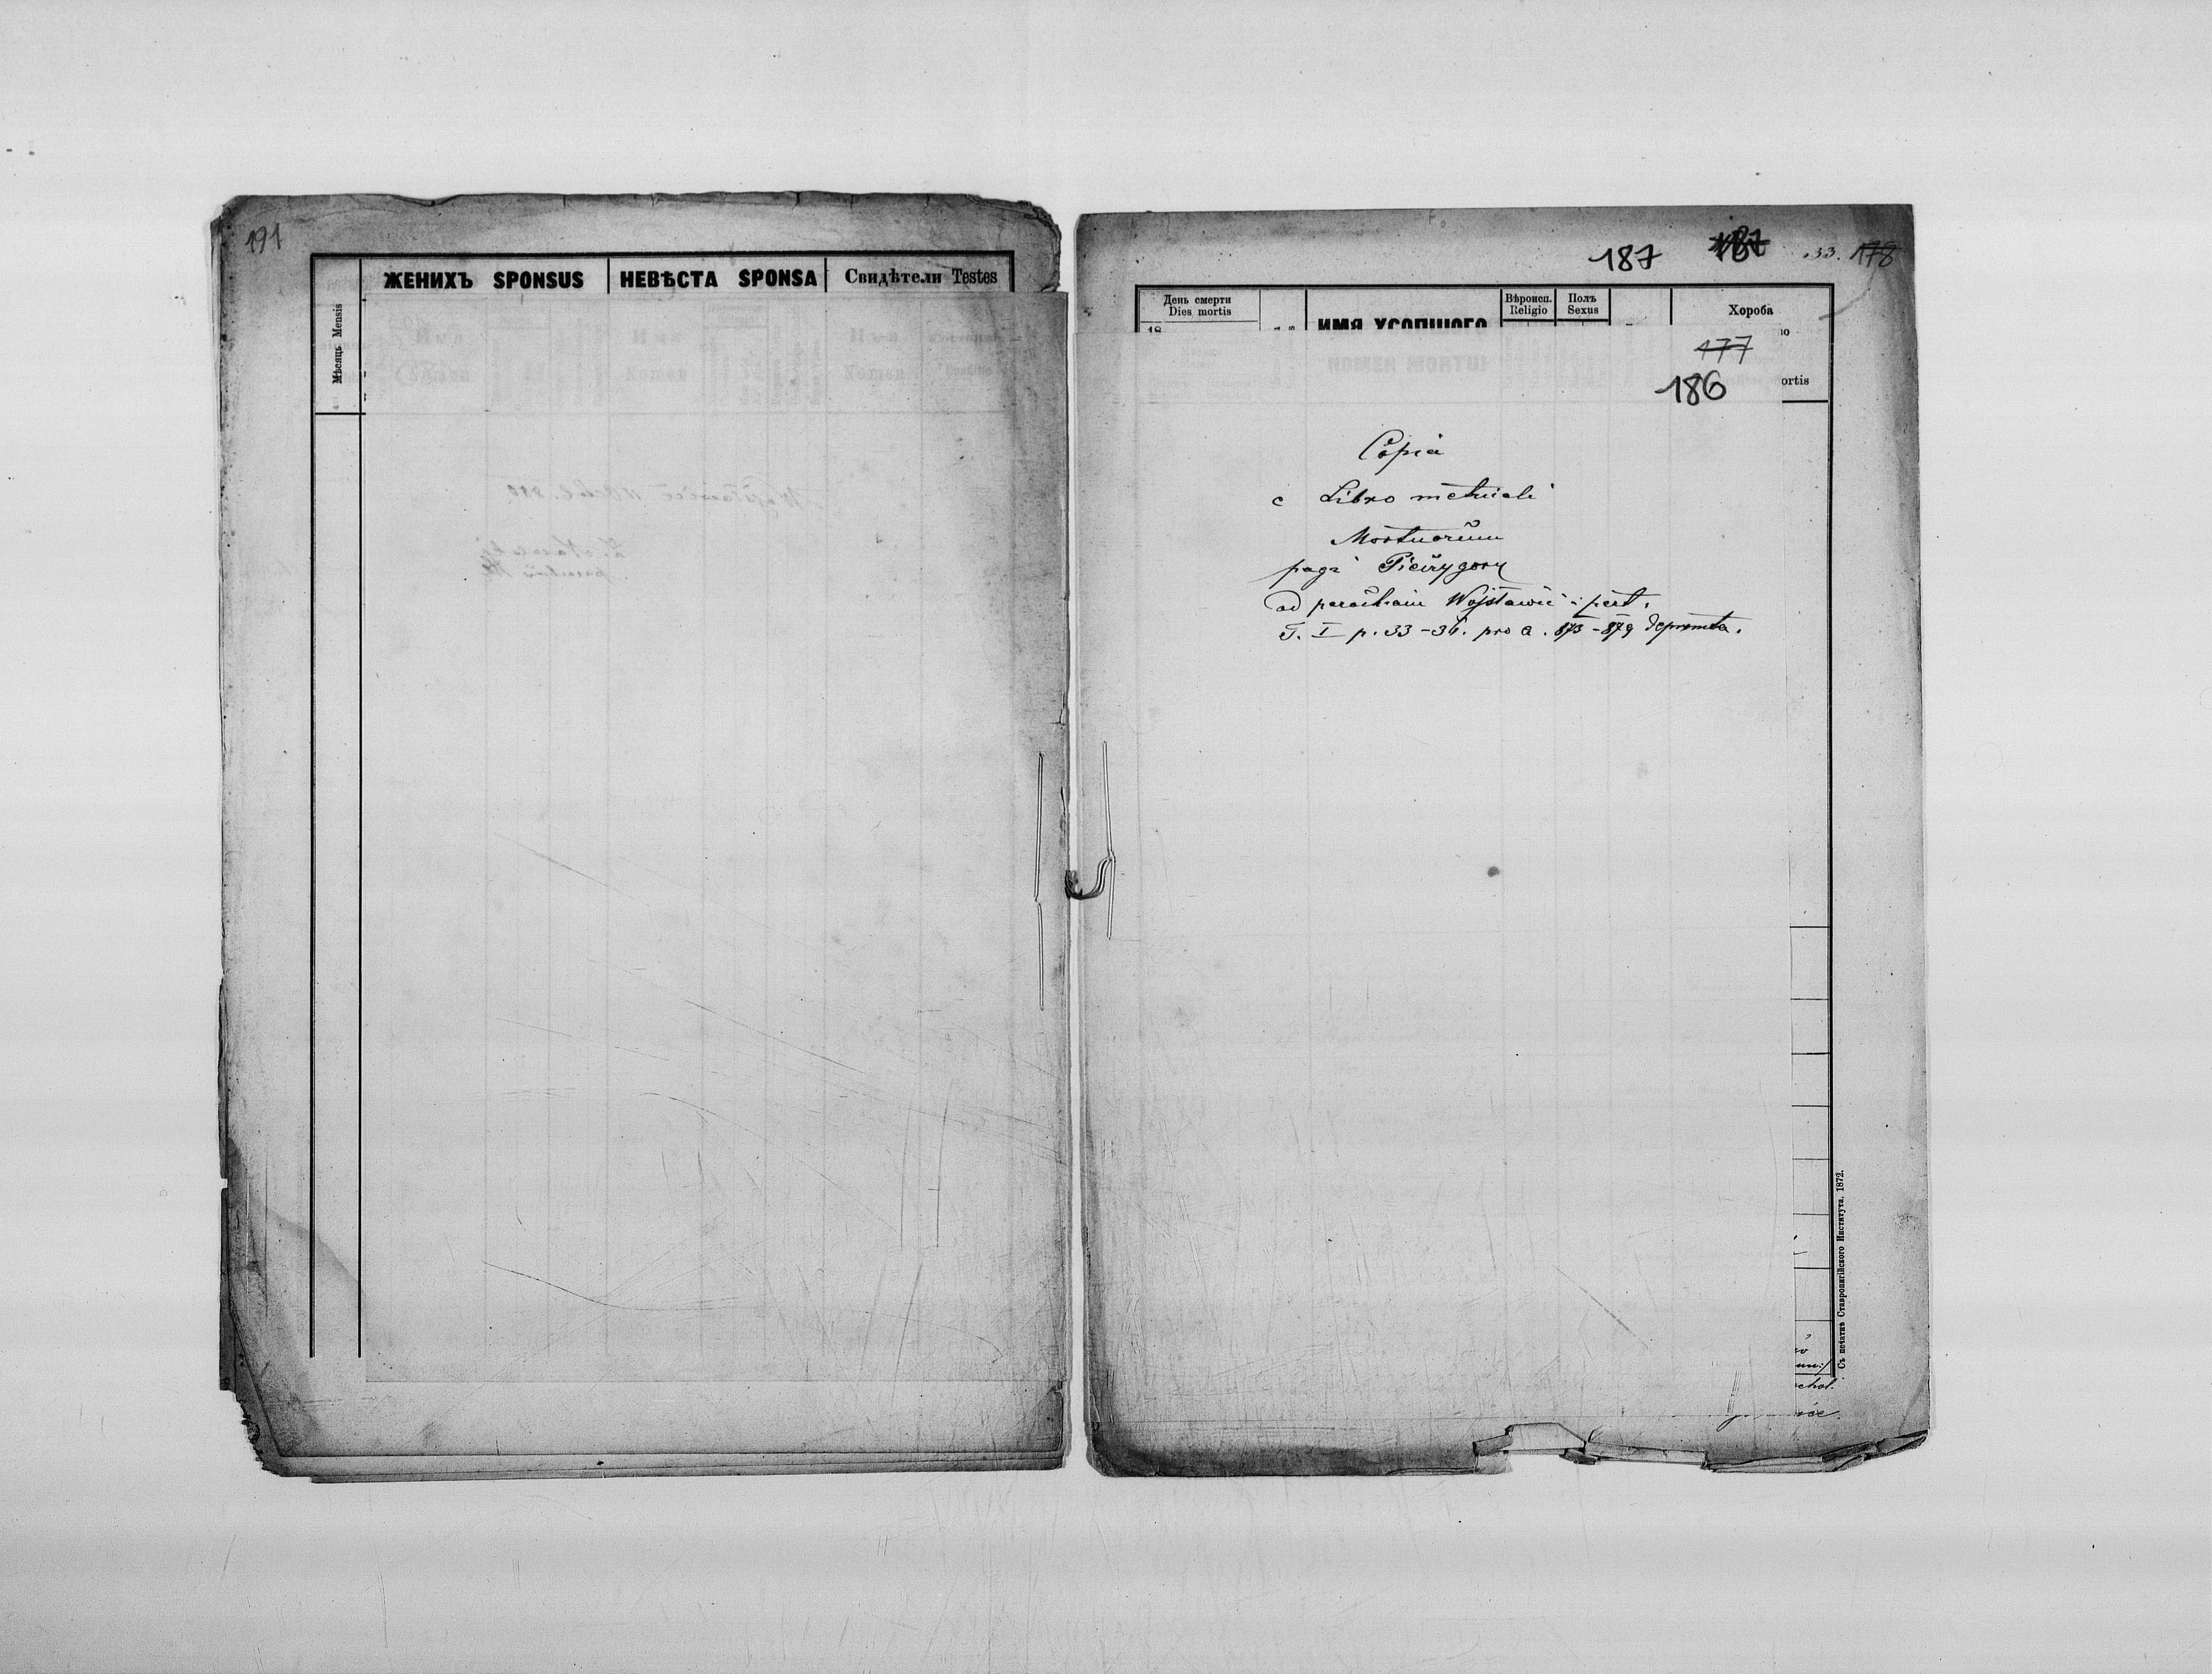 191
ЖЕНИХЪ SPONSUS НЕВѢСТА SPONSA Свидѣтели Testes
Мѣсяць Mensis
187 187 33. 178
День смерти
Dies mortis
18
ИМЯ УСОПШОГО
Вѣроисп.
Religio
Полъ
Sexus
Хороба
177
186
ortis
NOMEN MORTUI
Copia
c Libro metricali
Mortuorum
pagi Piećzygory
ad parochiam Wojsławice pert.
T. I p. 33-36. pro a. 873-879 depromta.
Съ печатнѣ Ставропигійского Института, 1872.